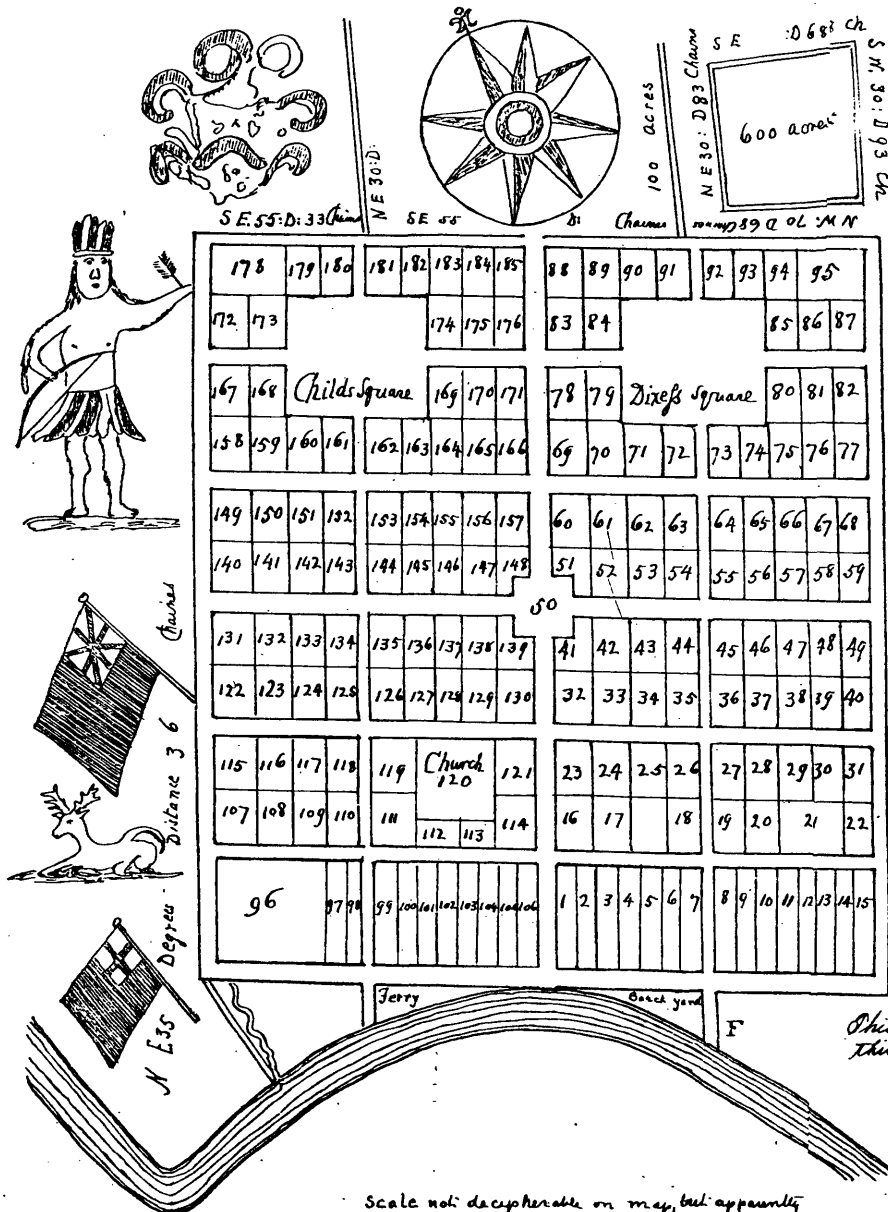 N
S E :D 68⅔ Ch
N E 30: D 83 Chains
600 acres
S W. 30: D 93 Ch
N W: 70 D 68 Chaines
100 acres
N E 30:D:
S E. 55:D: 33 Chains
SE 55 D: Chaines
178 179 180 181 182 183 184 185 88 89 90 91 92 93 94 95
172 173 174 175 176 83 84 85 86 87
167 168 Childs Square 169 170 171 78 79 Dixess Square 80 81 82
158 159 160 161 162 163 164 165 166 69 70 71 72 73 74 75 76 77
149 150 151 152 153 154 155 156 157 60 61 62 63 64 65 66 67 68
140 141 142 143 144 145 146 147 148 51 52 53 54 55 56 57 58 59
50
131 132 133 134 135 136 137 138 139 41 42 43 44 45 46 47 48 49
122 123 124 125 126 127 128 129 130 32 33 34 35 36 37 38 39 40
115 116 117 118 119 Church 120 121 23 24 25 26 27 28 29 30 31
107 108 109 110 111 112 113 114 16 17 18 19 20 21 22
96 97 98 99 100 101 102 103 104 106 1 2 3 4 5 6 7 8 9 10 11 12 13 14 15
N E 35 Degrees - Distance 36 Chaines
Ferry
yard
F
this
Scale not decypherable on map, but apparently